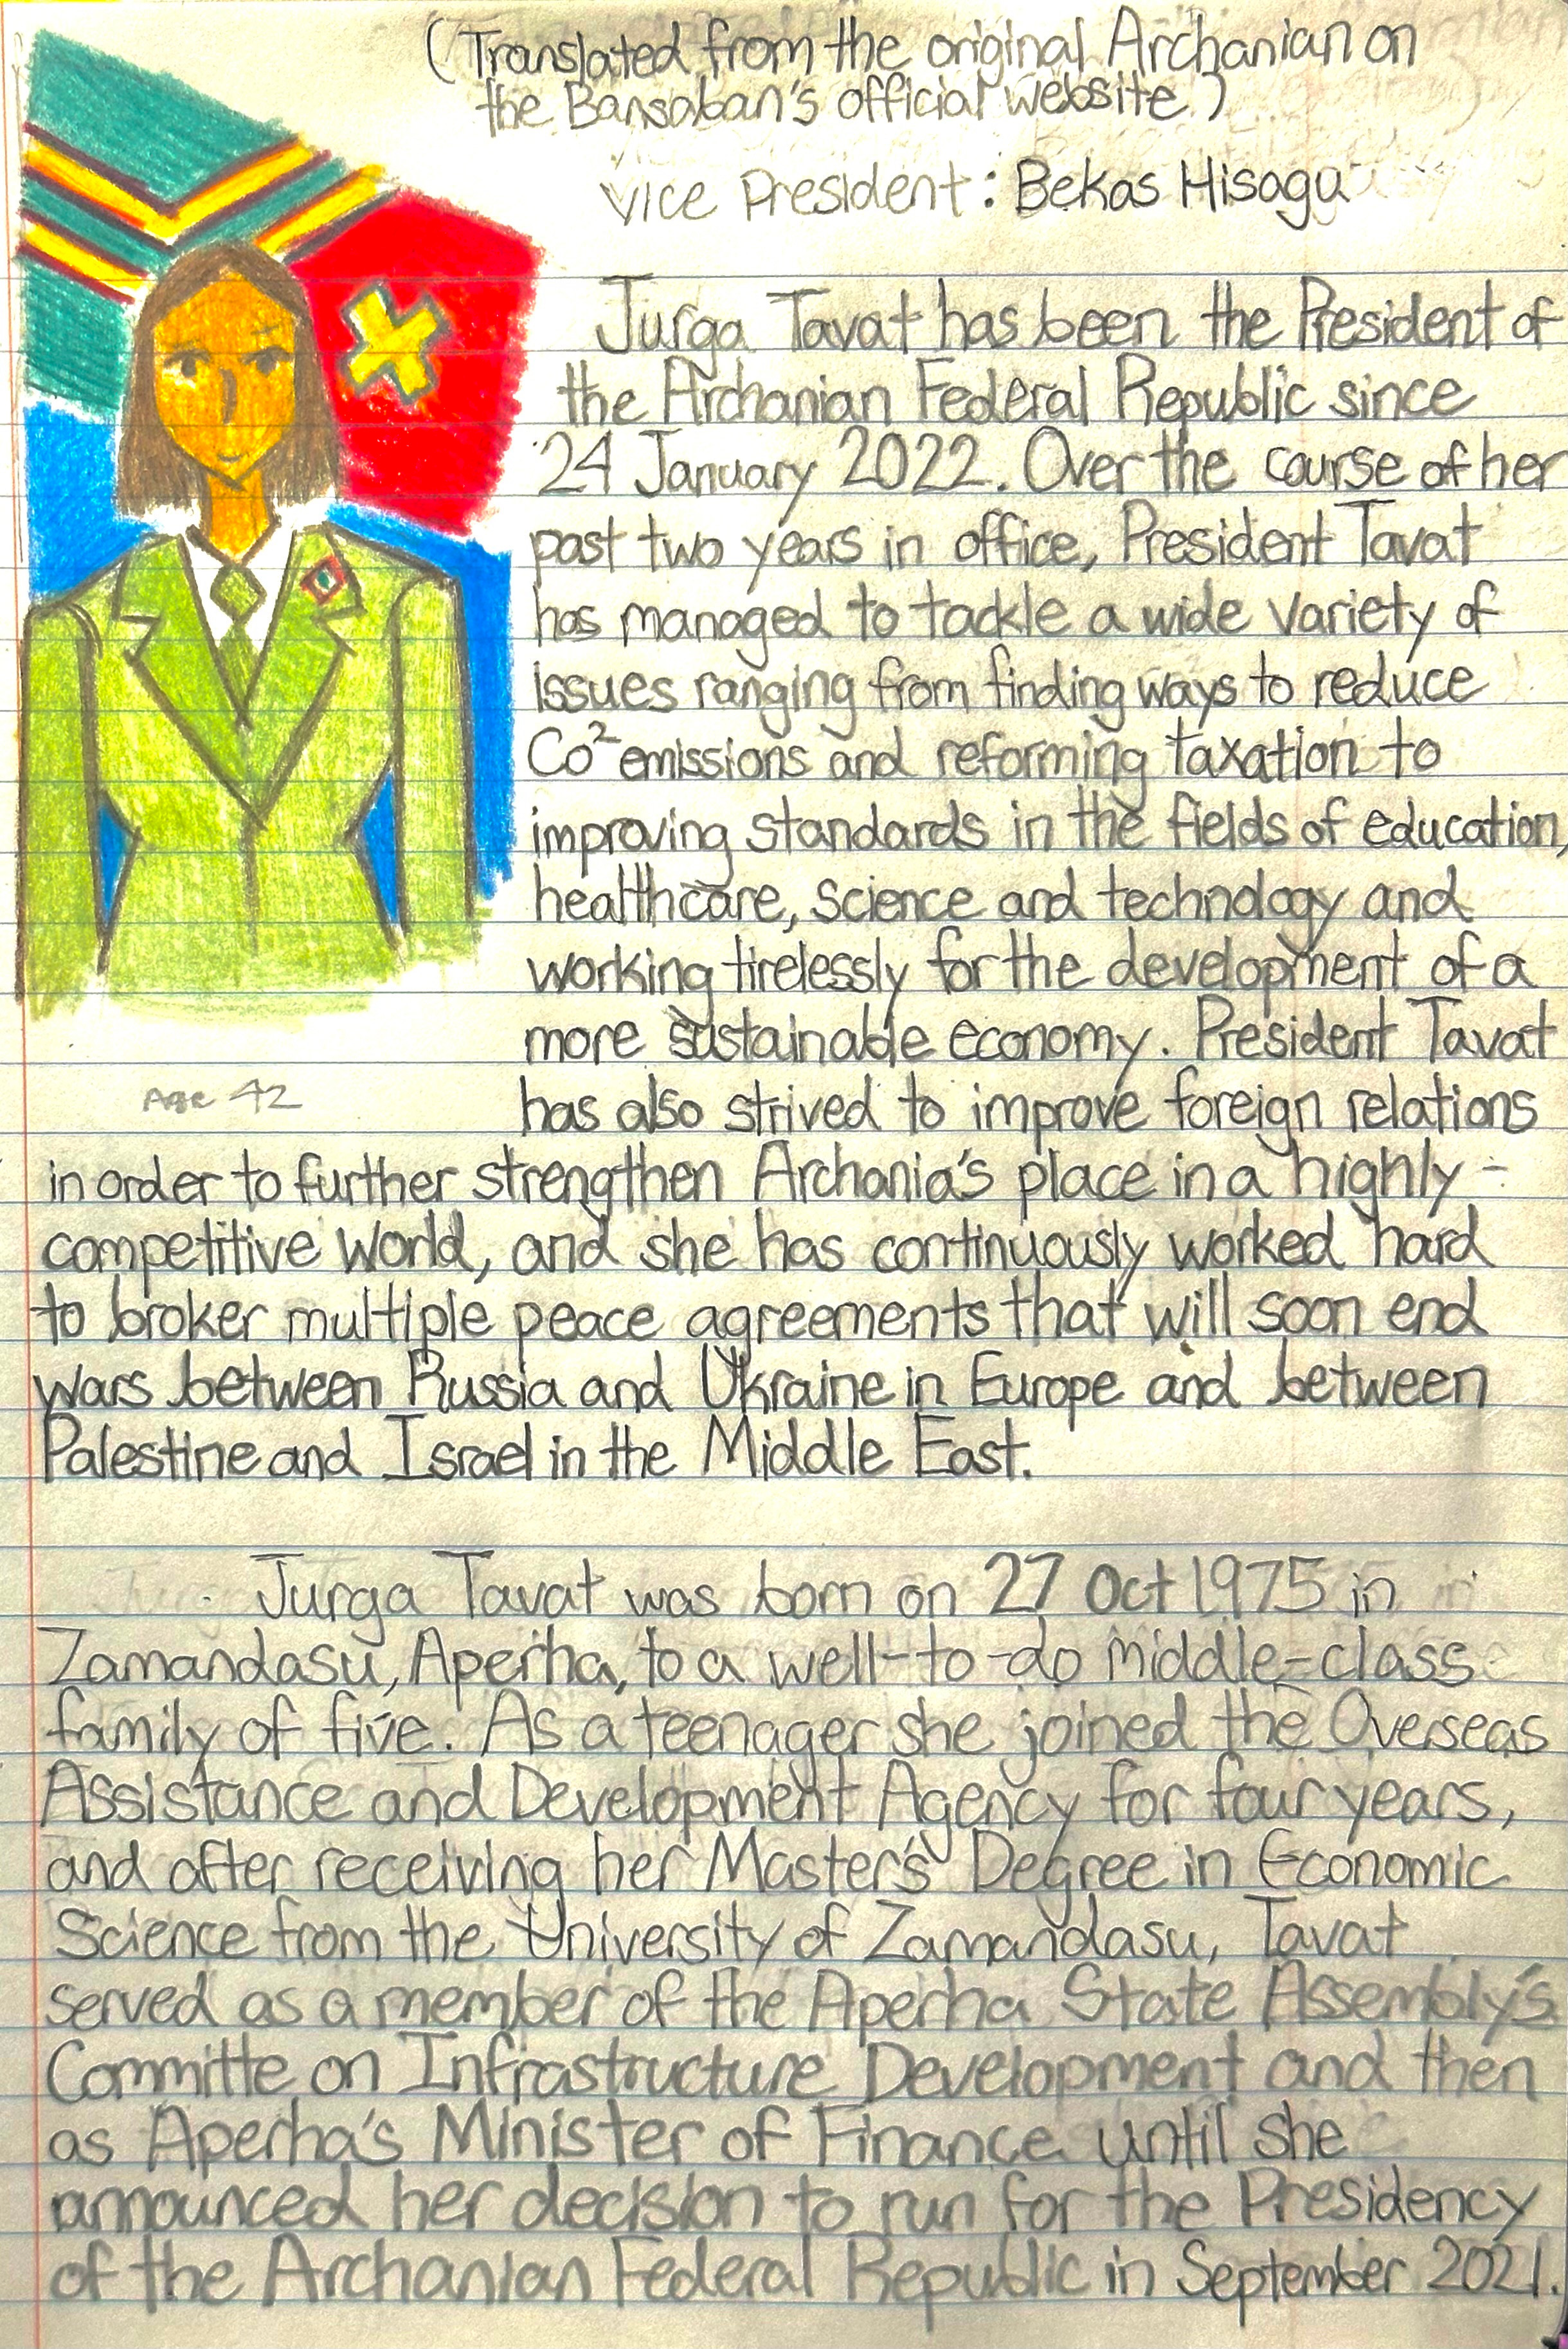 (Translated from the original Archanian on
the Bansaban's official website)
Vice President: Bekas Hisagu
Jurga Tavat has been the President of
the Archanian Federal Republic since
24 January 2022. Over the course of her
past two years in office, President Tavat
has managed to tackle a wide variety of
issues ranging from finding ways to reduce
Co² emissions and reforming taxation to
improving standards in the fields of education,
healthcare, science and technology and
working tirelessly for the development of a
more sustainable economy. President Tavat
Age 42
has also strived to improve foreign relations
in order to further strengthen Archania's place in a highly-
competitive world, and she has continuously worked hard
to broker multiple peace agreements that will soon end
wars between Russia and Ukraine in Europe and between
Palestine and Israel in the Middle East.
Jurga Tavat was born on 27 Oct 1975 in
Zamandasu, Aperha, to a well-to-do middle-class
family of five. As a teenager she joined the Overseas
Assistance and Development Agency for four years,
and after receiving her Master's Degree in Economic
Science from the University of Zamandasu, Tavat
served as a member of the Aperha State Assembly's
Committe on Infrastructure Development and then
as Aperha's Minister of Finance until she
announced her decision to run for the Presidency
of the Archanian Federal Republic in September 2021.